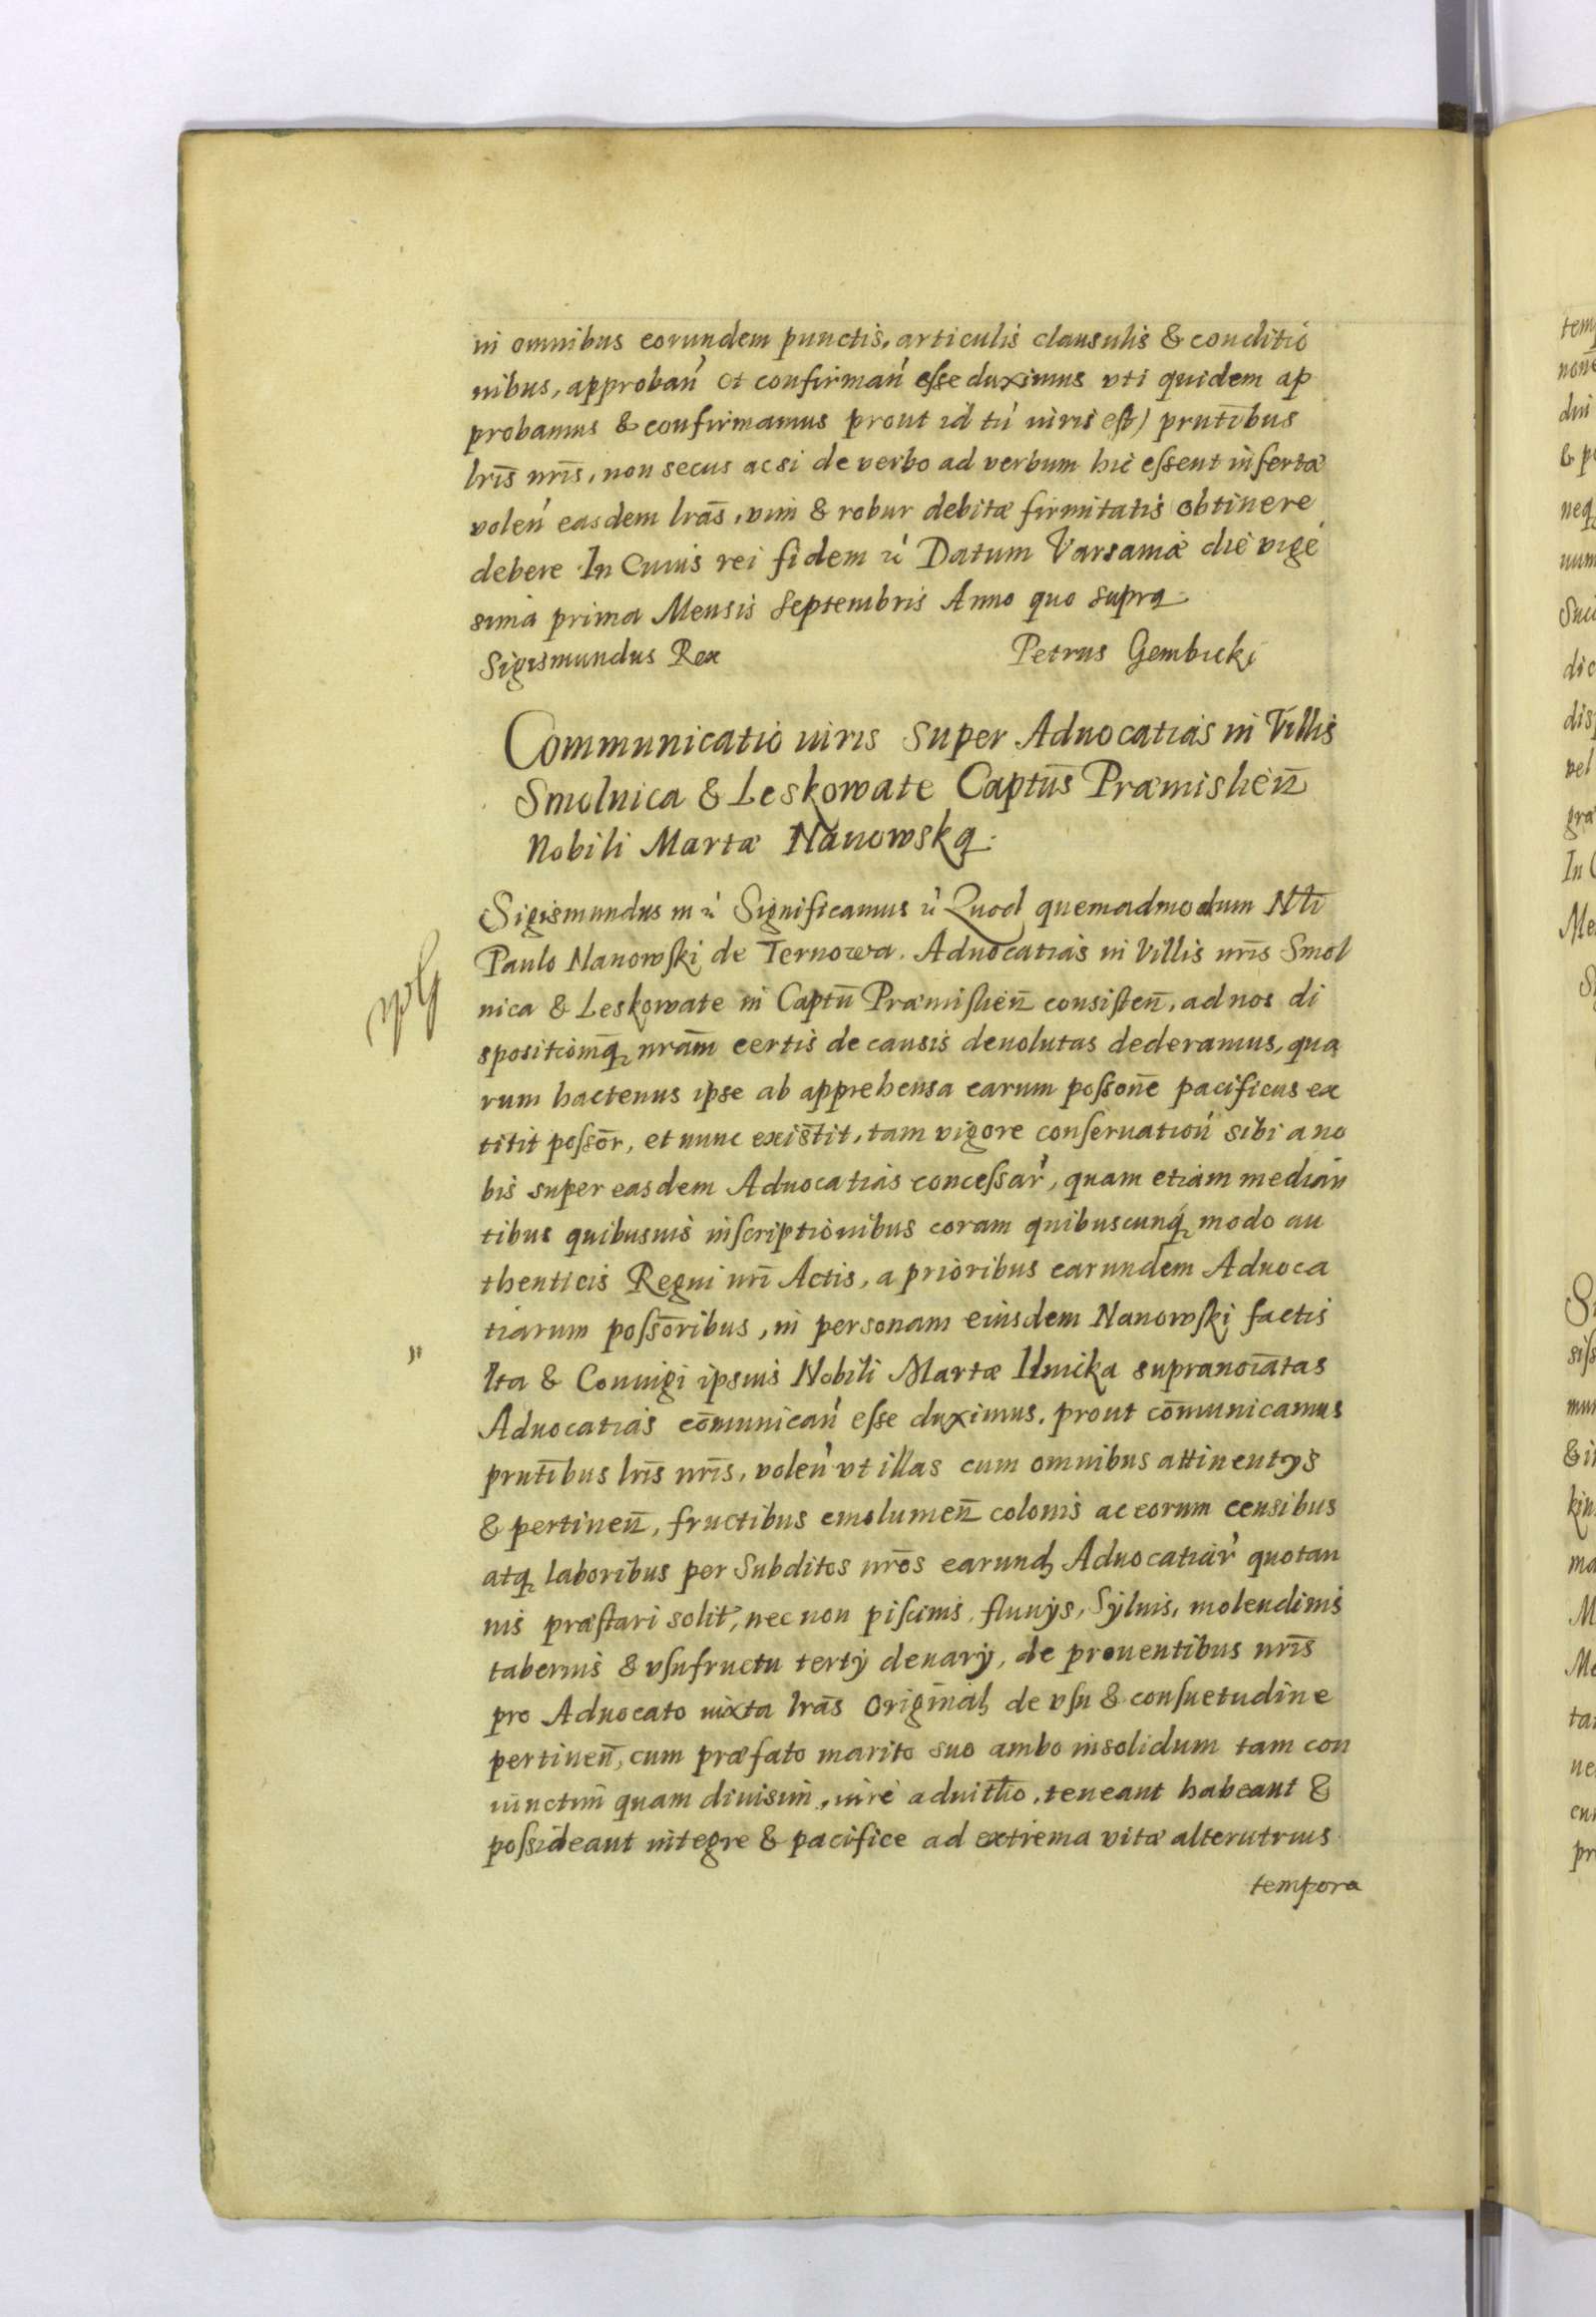 in omnibus eorundem punctis, articulis clausulis & conditio
nibus, approban̄ et confirman̄ eſse duximus vti quidem ap
probamus & confirmamus prout id tū iuris eſt) prntībus
lrīs nrīs, non secus ac si de verbo ad verbum hic eſsent inſertæ
volen̄ easdem lrās, vim & robur debitæ firmitatis obtinere
debere In Cuius rei fidem ꝛc̄ Datum Varsauiæ die vige
sima prima Mensis Septembris Anno quo supra
Sigismundus Rex Petrus Gembicki
Communicatio iuris super Aduocatias in Villis
Smolnica & Leskowate Captūs Præmislien̄
Nobili Martæ Nanowska.
Sigismundus III ꝛc̄ Significamus ꝛc̄ Quod quemadmodum Nbli
Paulo Nanowſki de Ternowa. Aduocatias in Villis nrīs Smol
nica & Leskowate in Captū Præmiſlien̄ consiſten̄, ad nos di
spositiomq̨ nrām certis de causis deuolutas dederamus, qua
rum hactenus ipse ab apprehensa earum poſsonē pacificus ex
titit poſsōr, et nunc existit, tam vigore conſeruation̄ sibi a no
bis super easdem Aduocatias conceſsar̄, quam etiam median
tibus quibusuis inſcriptionibus coram quibuscunq̨ modo au
thenticis Regni nrī Actis, a prioribus earundem Aduoca
tiarum poſsōribus, in personam eiusdem Nanowſki factis
Ita & Coniugi ipsius Nobili Martæ Ilnicka supranoīatas
Aduocatias cōmunican̄ eſse duximus, prout cōmunicamus
prntībus lrīs nrīs, volen̄ vt illas cum omnibus attinentijs
& pertinen̄, fructibus emolumen̄ colonis ac eorum censibus
atq̨ laboribus per Subditos nrōs earund̨ Aduocatiar̄ quotan
nis præſtari solit̄, nec non piſcinis, fluuijs, Syluis, molendinis
tabernis & vſufructu tertij denarij, de prouentibus nrīs
pro Aduocato iuxta lrās Originał de vſu & conſuetudine
pertinen̄, cum præfato marito suo ambo insolidum tam con
iunctim quam diuisim, iure aduitłio, teneant habeant &
poſsideant integre & pacifice ad extrema vitæ alterutrius
tempora